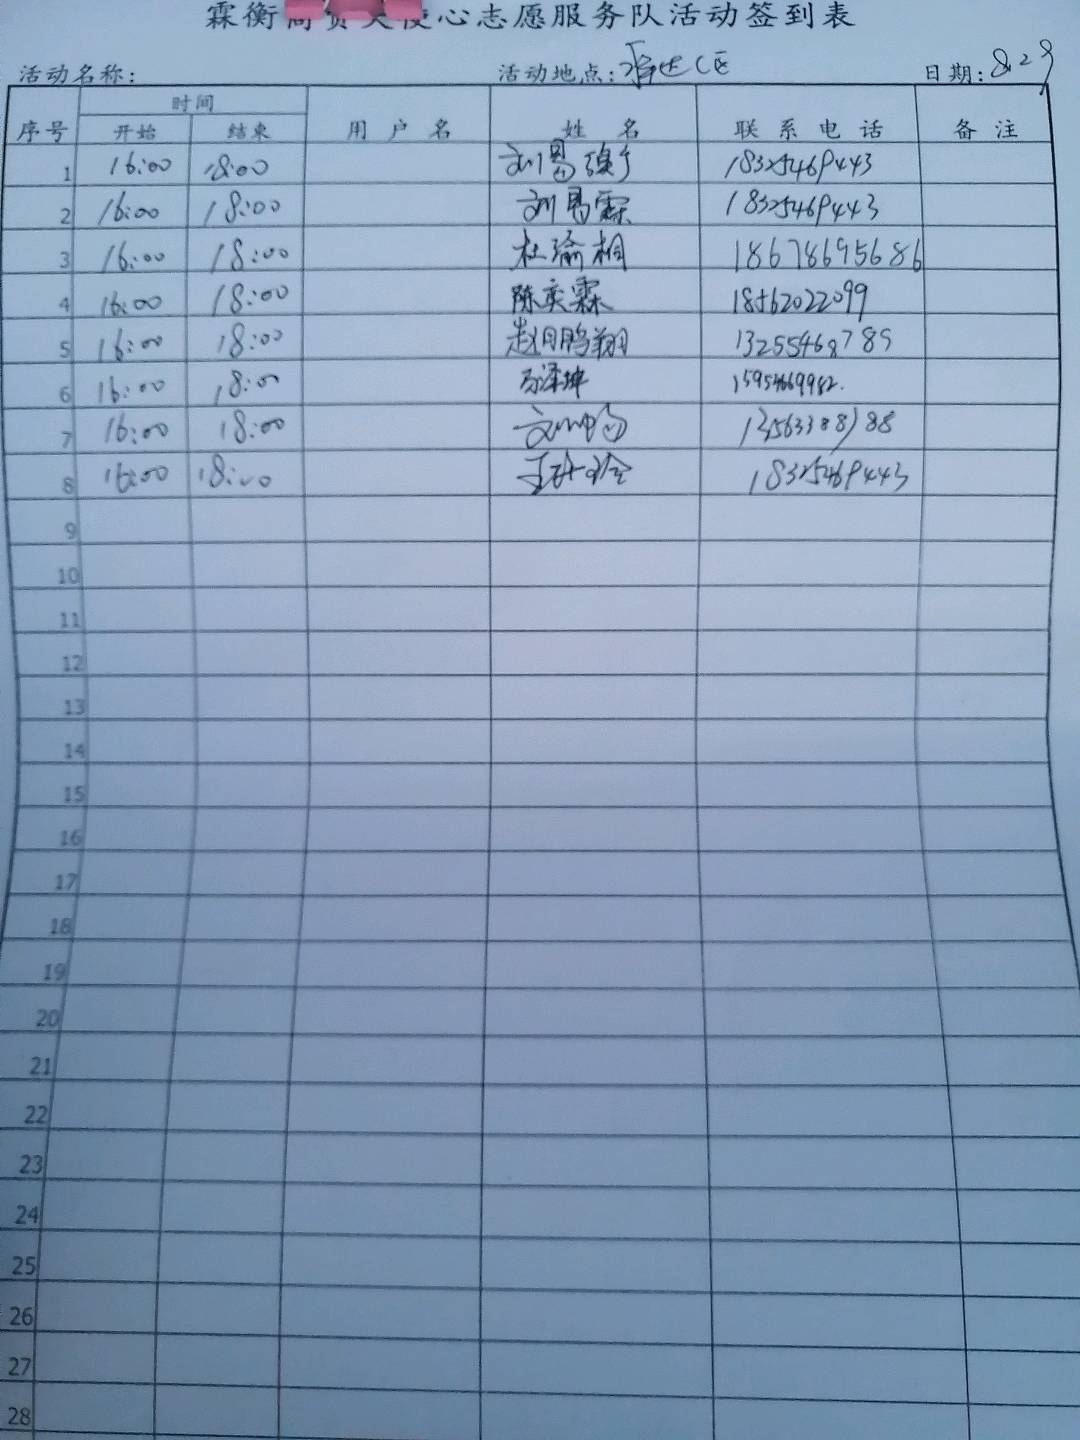 霖衡商贸天使心志愿服务队活动签到表
活动名称: 活动地点: C区 日期: 8.29
时间
序号 开始 结束 用户名 姓名 联系电话 备注
1 16:00 18:00 刘易 18325469443
2 16:00 18:00 刘易霖 18325469443
3 16:00 18:00 杜瑜桐 18678695686
4 16:00 18:00 陈奕霖 18562022099
5 16:00 18:00 赵鹏翔 13255468785
6 16:00 18:00 泽坤 15954669982.
7 16:00 18:00 刘畅 13563388788
8 16:00 18:00 王 18325469443
9
10
11
12
13
14
15
16
17
18
19
20
21
22
23
24
25
26
27
28